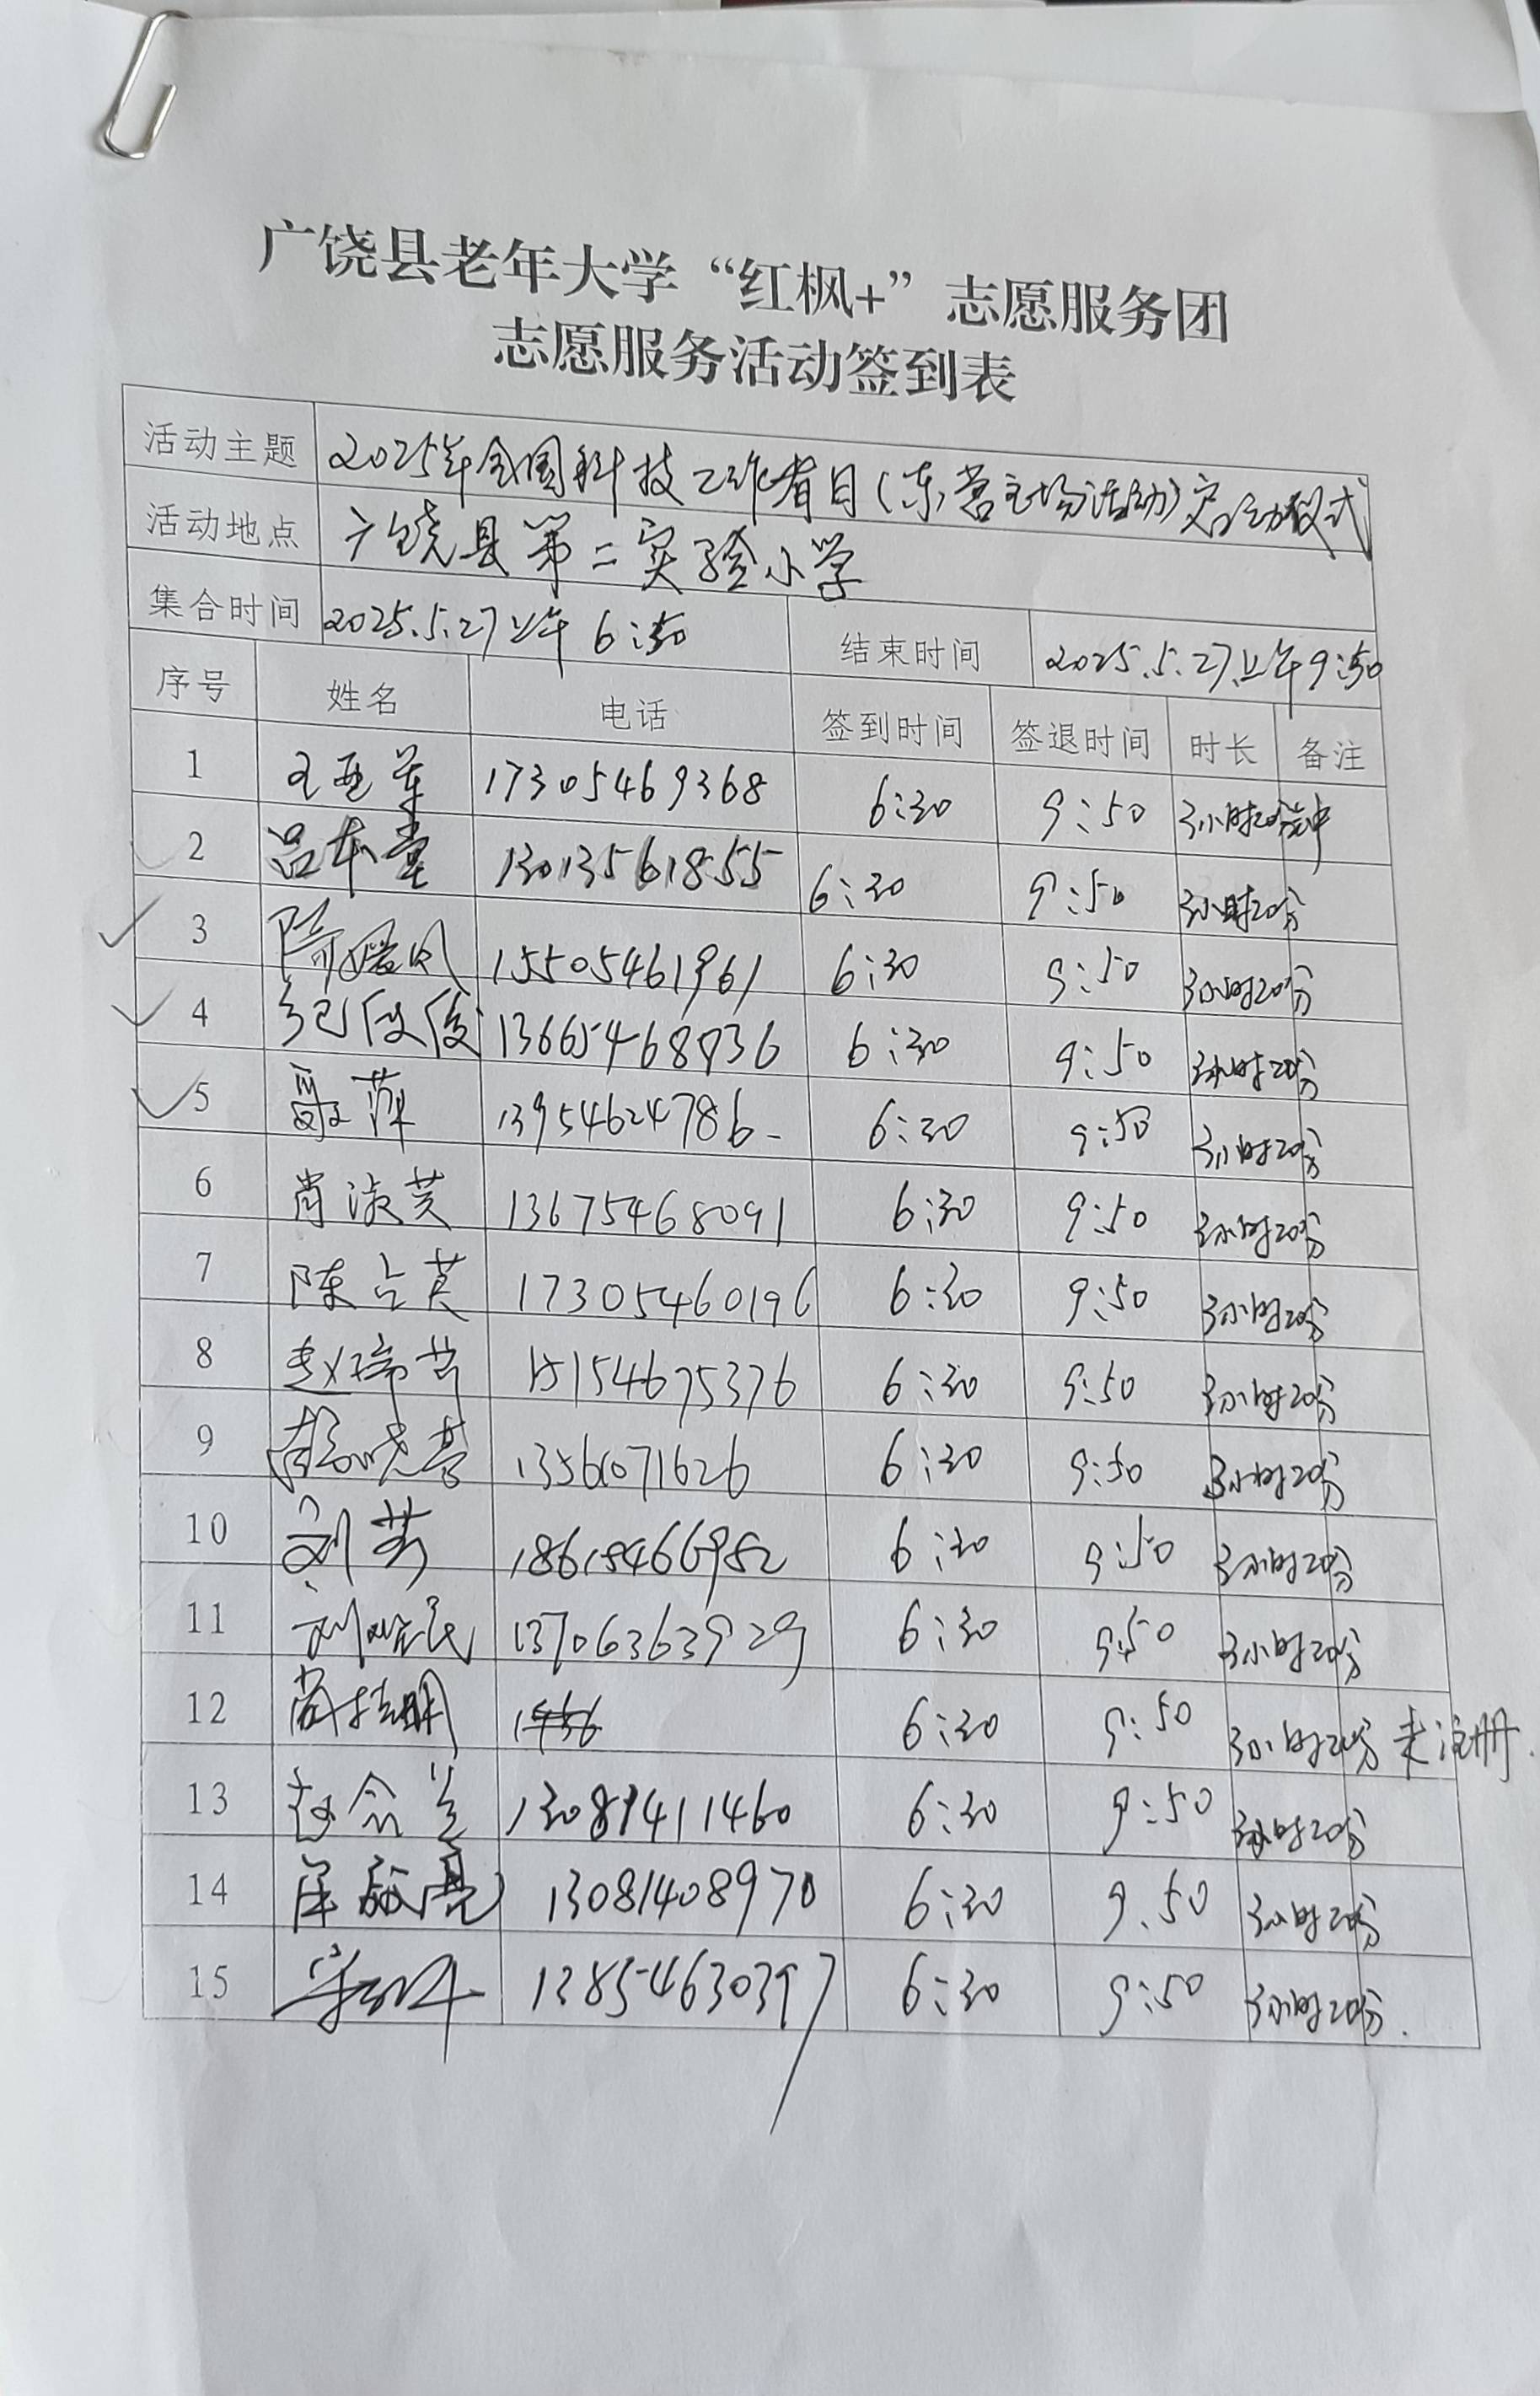 广饶县老年大学“红枫+”志愿服务团
志愿服务活动签到表
活动主题 2025年全国科技工作者日(东营主场活动)启动仪式
活动地点 广饶县第二实验小学
集合时间 2025.5.27上午 6:30 结束时间 2025.5.27.上午9:50
序号 姓名 电话 签到时间 签退时间 时长 备注
1 王亚军 17305469368 6:30 9:50 3小时20分钟
2 吕本堂 13013561855 6:30 9:50 3小时20分
3 15505461961 6:30 9:50 3小时20分
4 纪俊俊 13665468936 6:30 9:50 3小时20分
5 聂萍 13954624786 6:30 9:50 3小时20分
6 肖淑芙 13675468091 6:30 9:50 3小时20分
7 陈占英 17305460196 6:30 9:50 3小时20分
8 赵瑞芹 15154675376 6:30 9:50 3小时20分
9 6:30 9:50 3小时20分
10 刘芳 18615466982 6:30 9:50 3小时20分
11 刘 民 13706363929 6:30 9:50 3小时20分
12 6:30 9:50 3小时20分 未注册.
13 赵令兰 13089411460 6:30 9:50 3小时20分
14 13081408970 6:30 9.50 3小时20分
15 13854630397 6:30 9:50 3小时20分.